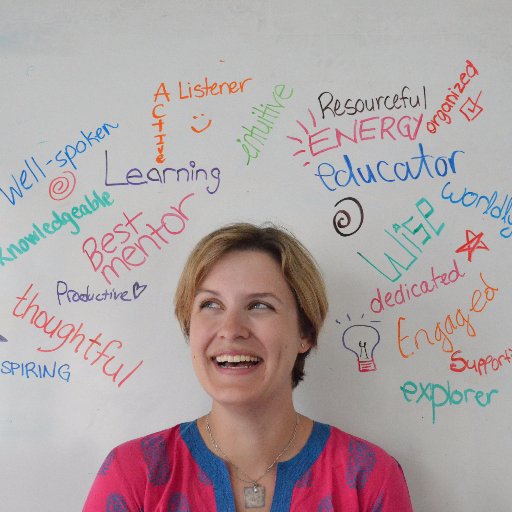 A Listener
CTIve
intuitive
Resourceful
organized
ENERGY
Well-spoken
Learning
educator
worldly
Knowledgeable
Best
mentor
WISE
Productive
dedicated
thoughtful
Engaged
SPIRING
Supporti
explorer